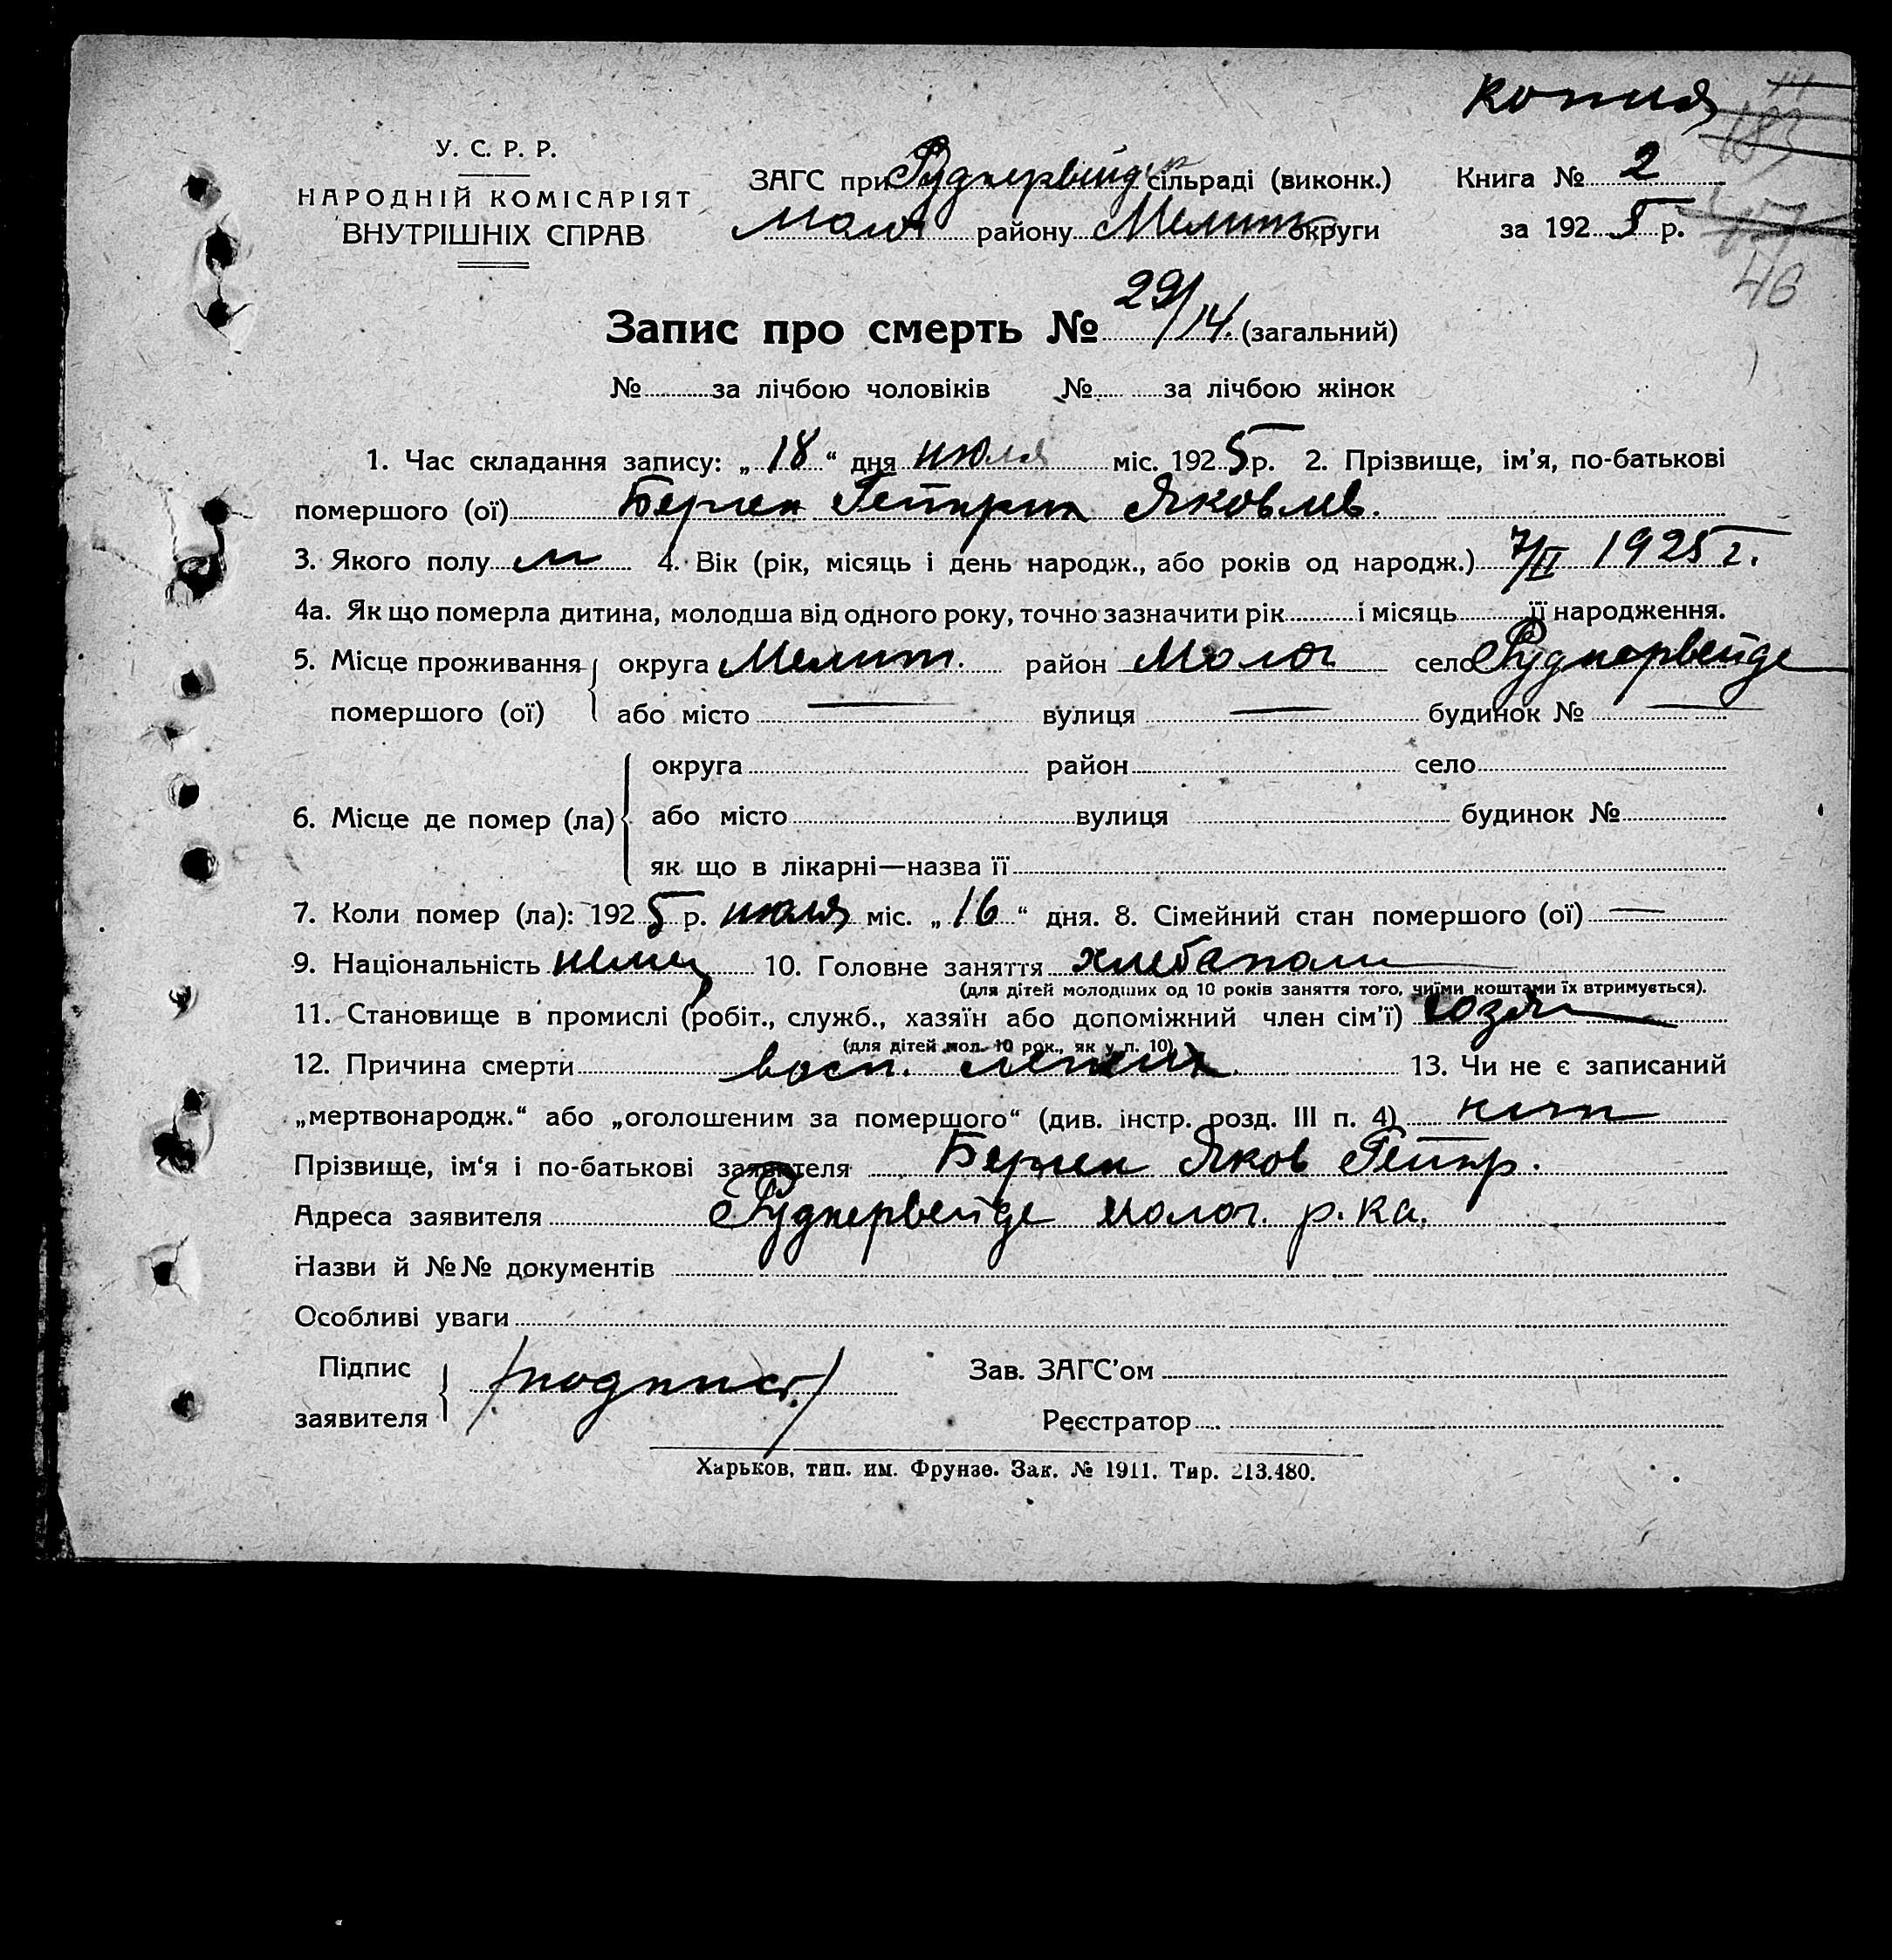 копия
183
У. С. Р. Р.
НАРОДНІЙ КОМІСАРІЯТ
ВНУТРІШНІХ СПРАВ
ЗАГС при Руднервейдск сільраді (виконк.) Книга № 2
Молоч району Мелитоп округи за 1925 р.
46
Запис про смерть № 29/14. (загальний)
№ за лічбою чоловіків № за лічбою жінок
1. Час складання запису: „ 18 “ дня июля міс. 1925 р. 2. Прізвище, ім'я, по-батькові
помершого (ої) Берген Гейнрих Яковлев.
3. Якого полу м 4. Вік (рік, місяць і день народж., або років од народж.) 7/II 1925 г.
4а. Як що померла дитина, молодша від одного року, точно зазначити рік і місяць її народження.
5. Місце проживання округа Мелит. район Молоч село Руднервейде
помершого (ої) або місто — вулиця — будинок № —
округа район село
6. Місце де помер (ла) або місто вулиця будинок №
як що в лікарні—назва її
7. Коли помер (ла): 1925 р. июля міс. „ 16 “ дня. 8. Сімейний стан помершого (ої) —
9. Національність немец 10. Головне заняття хлебопаш
(для дітей молодших од 10 років заняття того, чиїми коштами їх втримується).
11. Становище в промислі (робіт., служб., хазяїн або допоміжний член сім'ї) хозяин
(для дітей мол. 10 рок., як у п. 10)
12. Причина смерти восп. легких. 13. Чи не є записаний
„мертвонародж.“ або „оголошеним за помершого“ (див. інстр. розд. III п. 4) нет
Прізвище, ім'я і по-батькові заявителя Берген Яков Гейнр.
Адреса заявителя Руднервейде Молоч. р.ка.
Назви й №№ документів
Особливі уваги
Підпис /подпись/ Зав. ЗАГС'ом
заявителя Реєстратор
Харьков, тип. им. Фрунзе. Зак. № 1911. Тир. 213.480.